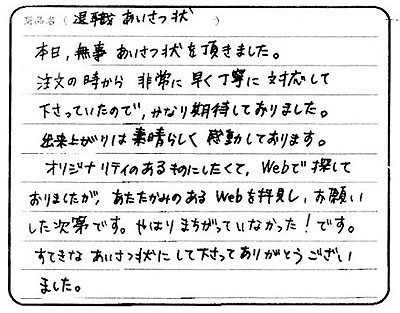 商品名( 退職 あいさつ状 )
本日,無事 あいさつ状を頂きました。
注文の時から 非常に早く丁寧に対応して
下さっていたので,かなり期待しておりました。
出来上がりは素晴らしく 感動しております。
オリジナリティのあるものにしたくて,Webで探して
おりましたが,あたたかみのある Webを拝見し,お願い
した次第です。やはりまちがっていなかった!です。
すてきな あいさつ状にして下さってありがとうござい
ました。